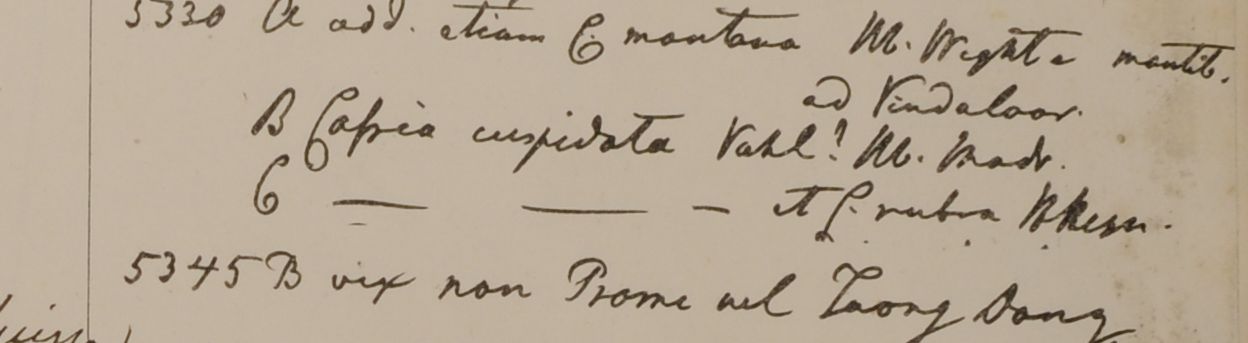 5330 A add. etiam C. montana M. Wight e mantib.
ad Vindaloor.
B Cassia cuspidata Vahl! M. Madr.
C — — — et C. rubra
5345 B vix non Prome vel Taong Dong